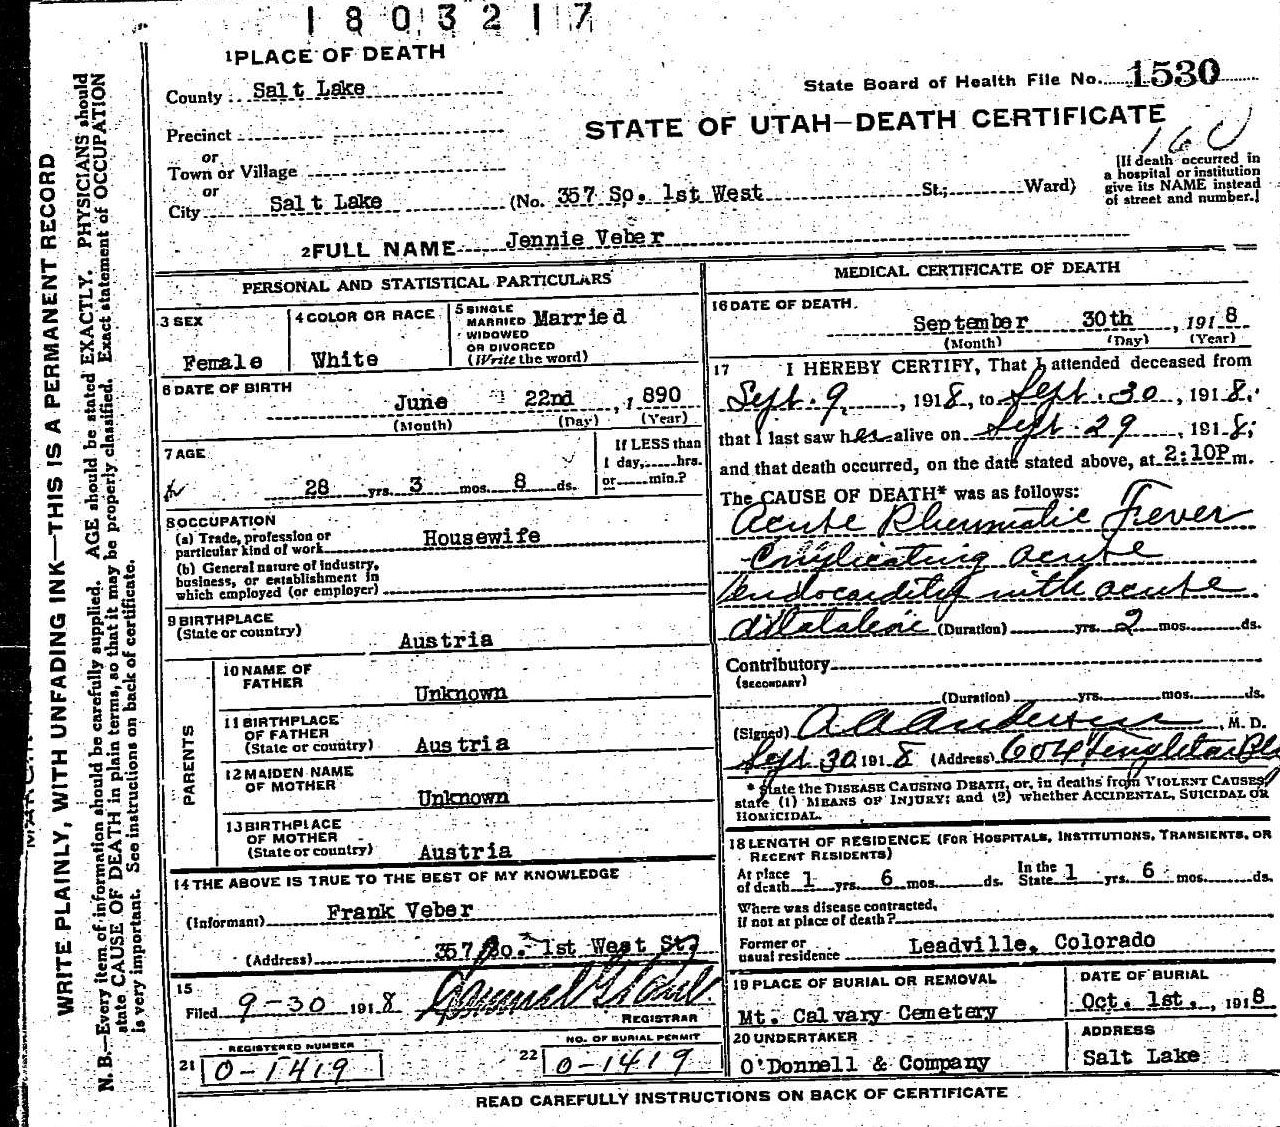 1803217
1 PLACE OF DEATH
County Salt Lake
State Board of Health File No. 1530
Precinct
STATE OF UTAH—DEATH CERTIFICATE
160
or
Town or Village
or
City Salt Lake (No. 357 So. 1st West St.; Ward)
[If death occurred in
a hospital or institution
give its NAME instead
of street and number.]
2 FULL NAME Jennie Veber
PERSONAL AND STATISTICAL PARTICULARS
3 SEX
Female
4 COLOR OR RACE
White
5 SINGLE
MARRIED Married
WIDOWED
OR DIVORCED
(Write the word)
6 DATE OF BIRTH
June 22nd, 1890
(Month) (Day) (Year)
7 AGE
28 yrs. 3 mos. 8 ds.
If LESS than
1 day, hrs.
or min.?
8 OCCUPATION
(a) Trade, profession or
particular kind of work Housewife
(b) General nature of industry,
business, or establishment in
which employed (or employer)
9 BIRTHPLACE
(State or country)
Austria
PARENTS
10 NAME OF
FATHER
Unknown
11 BIRTHPLACE
OF FATHER
(State or country) Austria
12 MAIDEN NAME
OF MOTHER
Unknown
13 BIRTHPLACE
OF MOTHER
(State or country) Austria
14 THE ABOVE IS TRUE TO THE BEST OF MY KNOWLEDGE
(Informant) Frank Veber
(Address) 357 So. 1st West St.
15
Filed 9-30 1918
REGISTRAR
21 REGISTERED NUMBER
0-1419
22 NO. OF BURIAL PERMIT
0-1419
MEDICAL CERTIFICATE OF DEATH
16 DATE OF DEATH.
September 30th, 1918
(Month) (Day) (Year)
17 I HEREBY CERTIFY, That I attended deceased from
Sept. 9, 1918, to Sept. 30, 1918.
that I last saw her alive on Sept. 29, 1918;
and that death occurred, on the date stated above, at 2:10P m.
The CAUSE OF DEATH* was as follows:
Acute Rheumatic Fever
Complicating acute
endocarditis with acute
dilatation (Duration) yrs. 2 mos. ds.
Contributory
(SECONDARY)
(Duration) yrs. mos. ds.
(Signed) A A Anderson, M. D.
Sept. 30 1918 (Address) 604
* State the DISEASE CAUSING DEATH, or, in deaths from VIOLENT CAUSES,
state (1) MEANS OF INJURY; and (2) whether ACCIDENTAL, SUICIDAL OR
HOMICIDAL.
18 LENGTH OF RESIDENCE (FOR HOSPITALS, INSTITUTIONS, TRANSIENTS, OR
RECENT RESIDENTS)
At place
of death 1 yrs. 6 mos. ds.
In the
State 1 yrs. 6 mos. ds.
Where was disease contracted,
if not at place of death?
Former or
usual residence Leadville, Colorado
19 PLACE OF BURIAL OR REMOVAL
Mt. Calvary Cemetery
DATE OF BURIAL
Oct. 1st., 1918
20 UNDERTAKER
O'Donnell & Company
ADDRESS
Salt Lake
READ CAREFULLY INSTRUCTIONS ON BACK OF CERTIFICATE
WRITE PLAINLY, WITH UNFADING INK—THIS IS A PERMANENT RECORD
N. B.—Every item of information should be carefully supplied. AGE should be stated EXACTLY. PHYSICIANS should
state CAUSE OF DEATH in plain terms, so that it may be properly classified. Exact statement of OCCUPATION
is very important. See instructions on back of certificate.